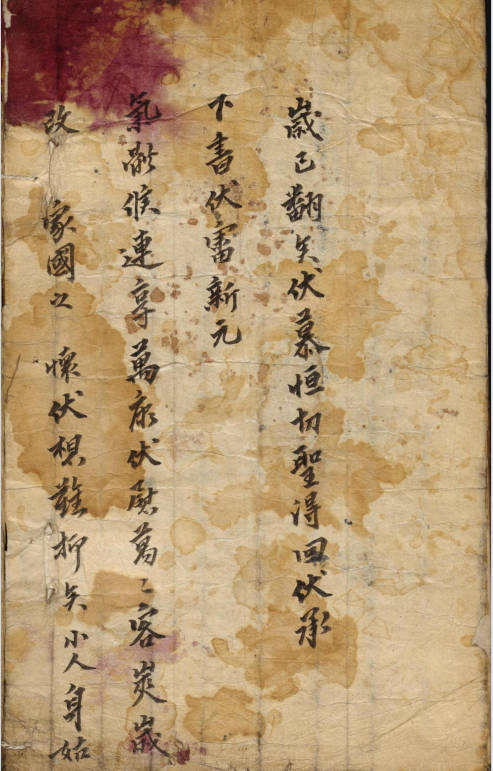 歲已翻矣伏慕恒切聖得回伏承
下書伏審新元
氣體候連享萬康伏慰萬〻客炭歲
改 家國之 懷伏想難抑矣小人身姑